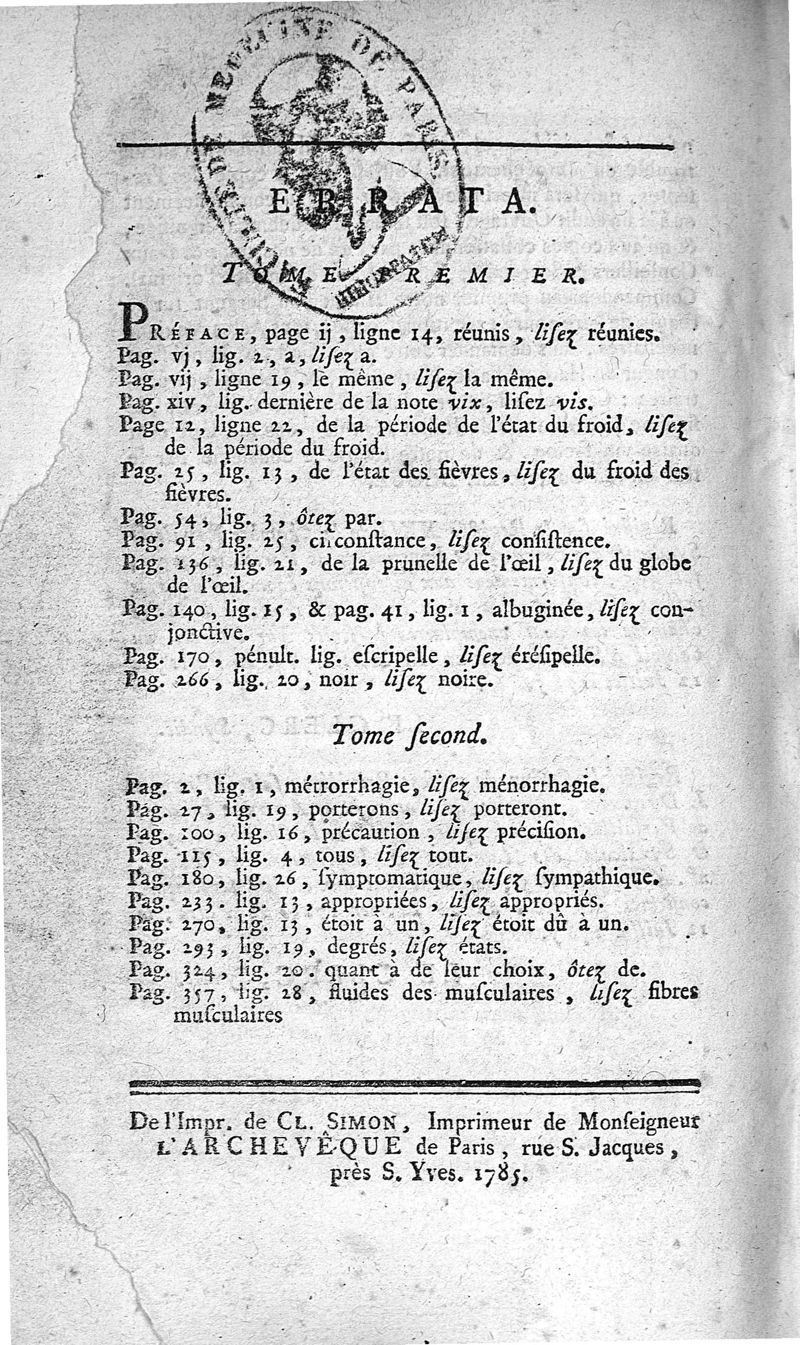 DE MEDECINE DE PARIS.
ERRATA.
TOME PREMIER.
PRÉFACE, page ij, ligne 14, réunis, liſez réunies.
Pag. vj, lig. 2, a, liſez a.
Pag. vij, ligne 19, le même, liſez la même.
Pag. xiv, lig. dernière de la note vix, liſez vis.
Page 12, ligne 22, de la période de l'état du froid, liſez
de la période du froid.
Pag. 25, lig. 13, de l'état des fièvres, liſez du froid des
fièvres.
Pag. 54, lig. 3, ôtez par.
Pag. 91, lig. 25, circonſtance, liſez conſiſtence.
Pag. 136, lig. 21, de la prunelle de l'œil, liſez du globe
de l'œil.
Pag. 140, lig. 15, & pag. 41, lig. 1, albuginée, liſez con-
jonctive.
Pag. 170, pénult. lig. eſcripelle, liſez éréſipelle.
Pag. 266, lig. 20, noir, liſez noire.
Tome ſecond.
Pag. 2, lig. 1, métrorrhagie, liſez ménorrhagie.
Pag. 27, lig. 19, porterons, liſez porteront.
Pag. 100, lig. 16, précaution, liſez préciſion.
Pag. 115, lig. 4, tous, liſez tout.
Pag. 180, lig. 26, ſymptomatique, liſez ſympathique.
Pag. 233. lig. 13, appropriées, liſez appropriés.
Pag. 270, lig. 13, étoit à un, liſez étoit dû à un.
Pag. 293, lig. 19, degrés, liſez états.
Pag. 324, lig. 20. quant à de leur choix, ôtez de.
Pag. 357, lig. 28, fluides des muſculaires, liſez fibres
muſculaires
De l'Impr. de CL. SIMON, Imprimeur de Monſeigneur
L'ARCHEVÊQUE de Paris, rue S. Jacques,
près S. Yves. 1785.